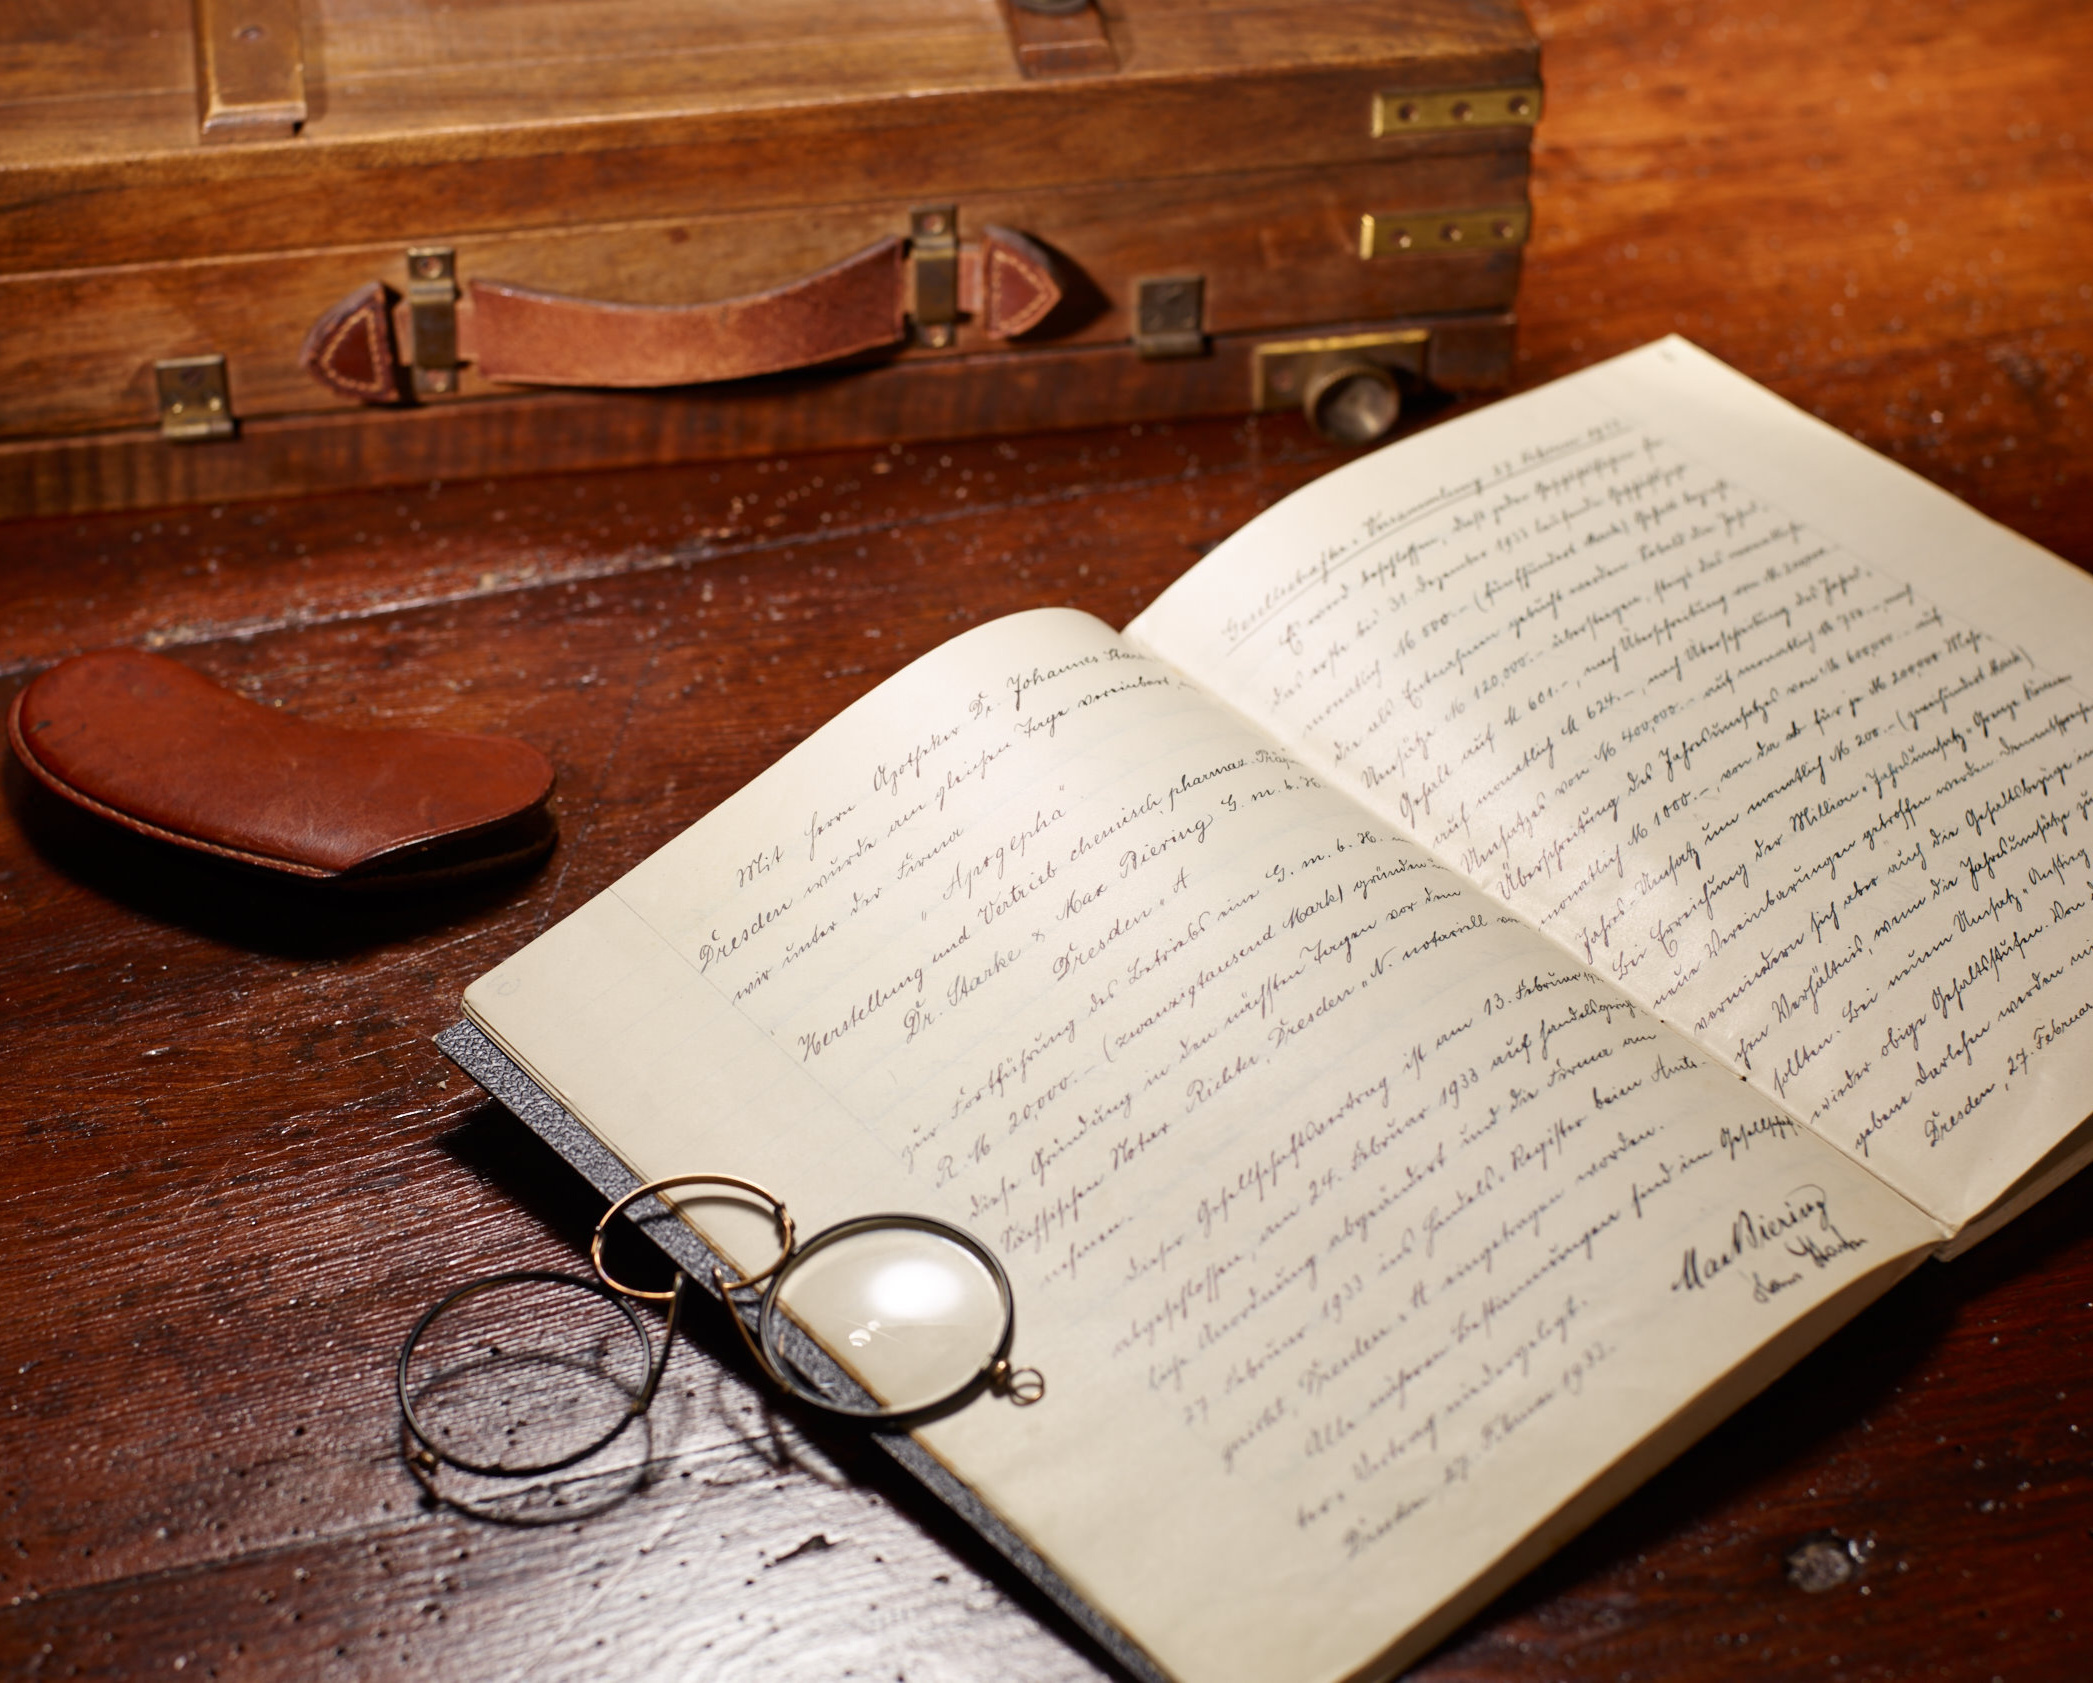 Mit Herrn Apotheker Dr. Johannes
Dresden wurde am gleichen Tage vereinbart,
wir unter der Firma
"Apogepha"
Herstellung und Vertrieb chemisch, pharmaz.
Dr. Starke & Max Biering G.m.b.H.
Dresden-A
zur Fortführung des Betriebs eine G.m.b.H.
R.M 20,000.- (zwanzigtausend Mark) gründen
diese Gründung in den nächsten Tagen vor dem
Sächsischen Notar Richter, Dresden-N. notariell
nehmen.
Dieser Gesellschaftsvertrag ist am 13. Februar
abgeschlossen, am 24. Februar 1933 auf
liche Anordnung abgeändert und die Firma am
27. Februar 1933 ins Handels-Register beim Amts-
gericht Dresden-A eingetragen worden.
Alle näheren Bestimmungen sind im
Vertrag niedergelegt.
Dresden, 27. Februar 1933.
Max Biering
Gesellschafts-Versammlung 27. Februar 1933
Es wird beschlossen, daß jeder
das erste bis 31. Dezember 1933 laufende
monatlich M 500.- (fünfhundert Mark) Gehalt
die als Entnahmen gebucht werden. Sobald die
Umsätze M 120,000.- übersteigen, steigt das monatliche
Gehalt auf M 601.-, nach Überschreitung von M
auf monatlich M 624.-, nach Überschreitung des
Umsatzes von M 400,000.- auf monatlich M 700.-,
Überschreitung des Jahresumsatzes von M 600000.- auf
monatlich M 1000.-, von da ab für je M 200,000
Jahres-Umsatz um monatlich M 200.- (zweihundert Mark)
Bei Erreichung der Million-Jahresumsatz-Grenze
neue Vereinbarungen getroffen werden.
vermindern sich aber auch die Gehaltsbezüge
chen Verhältnis, wenn die Jahresumsätze
sollten. Bei neuem Umsatz-Anstieg
wieder obige Gehaltsstufen. Von
gebene Darlehn werden
Dresden, 27. Februar